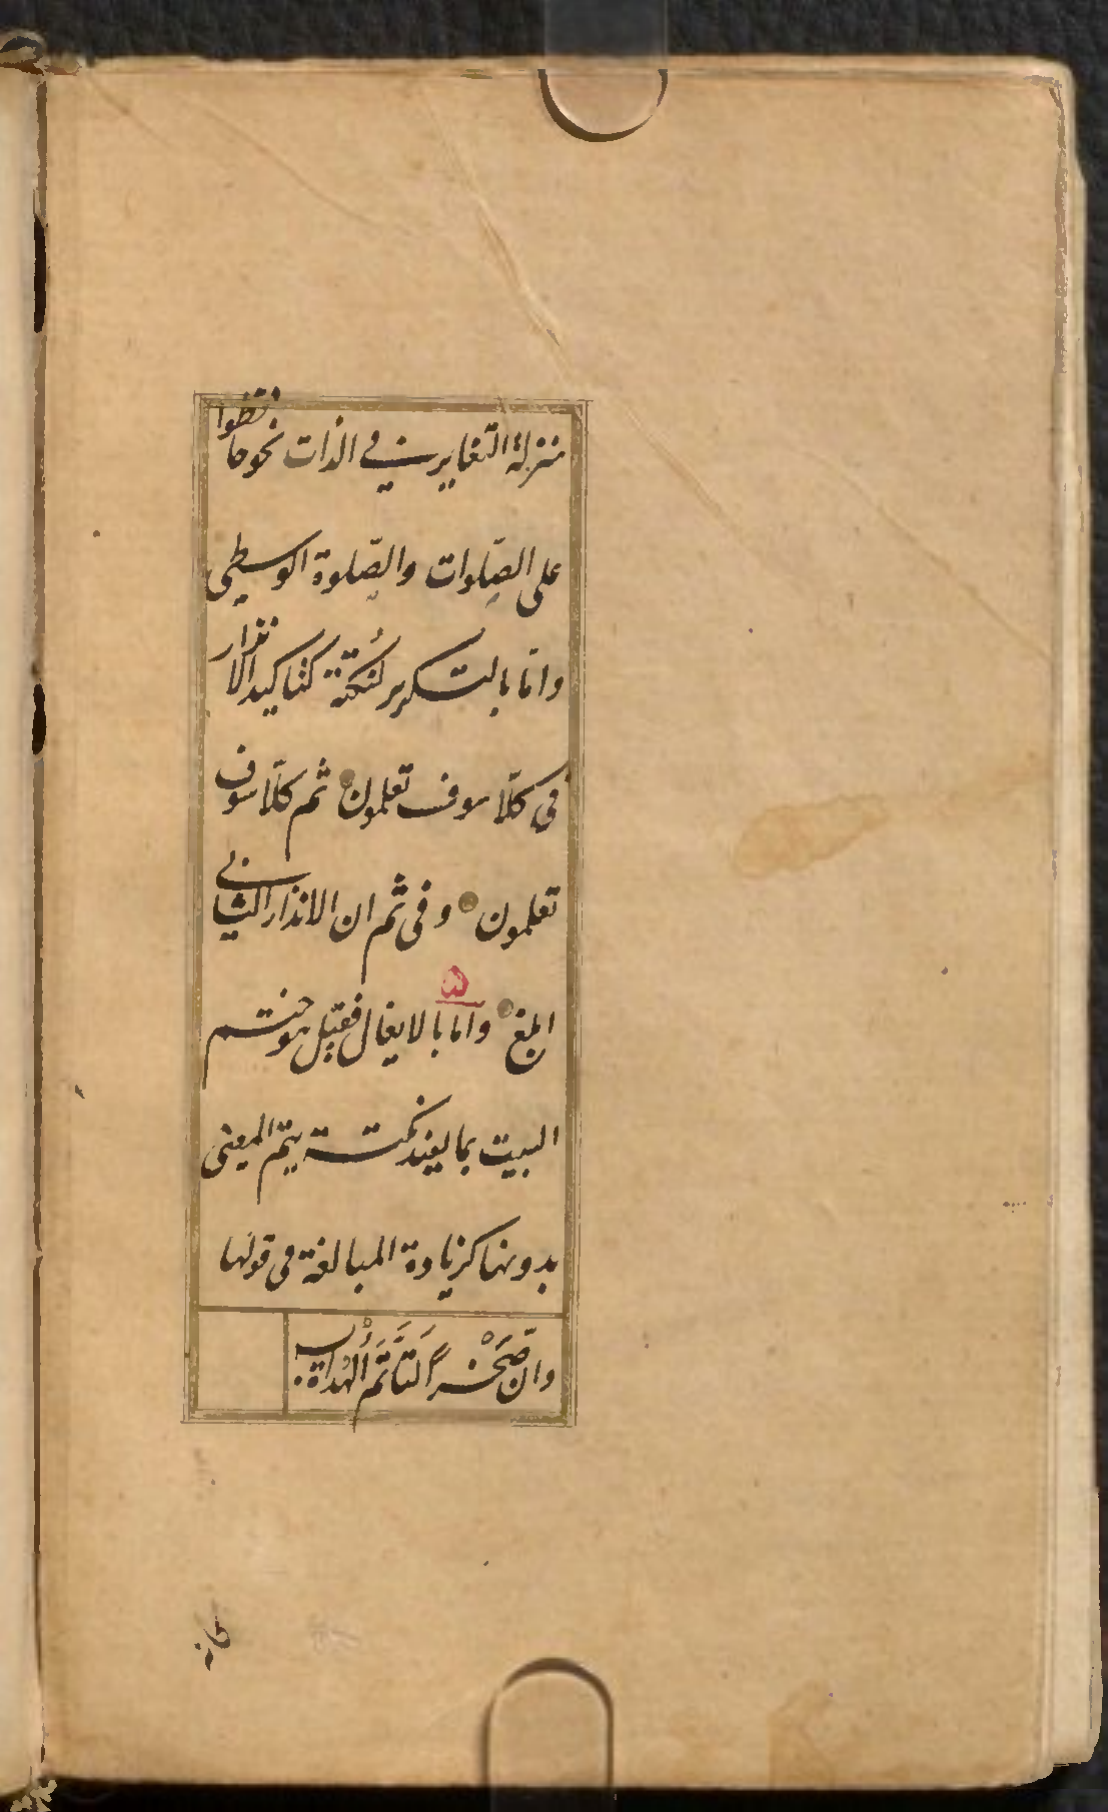 منزلة التغاير في الذات نحو حافظوا
على الصّلوات والصّلوة الوسطى
وامّا بالتكرير لنُكتة كتاكيد الانذار
في كلّا سوف تعلمون ثم كلّا سوف
تعلمون وفي ثم ان الانذار الثاني
ابلغ واما بالايغال فقيل هو ختم
البيت بما يفيد نكتة يتم المعنى
بدونها كزيادة المبالغة في قولها
وانّ صَخْراً لَتَأتَمُّ الهُداةُ به
كانه